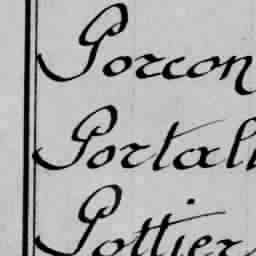 Porcon
Portall
Pottier